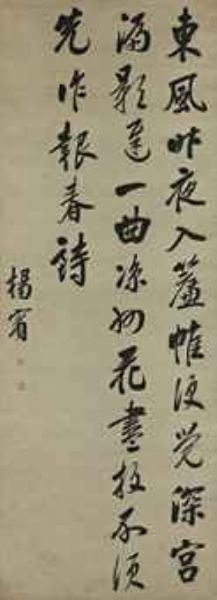 東風昨夜入簾帷便覺深宮
漏影遲一曲凉州花盡放不須
先作報春詩
楊賓